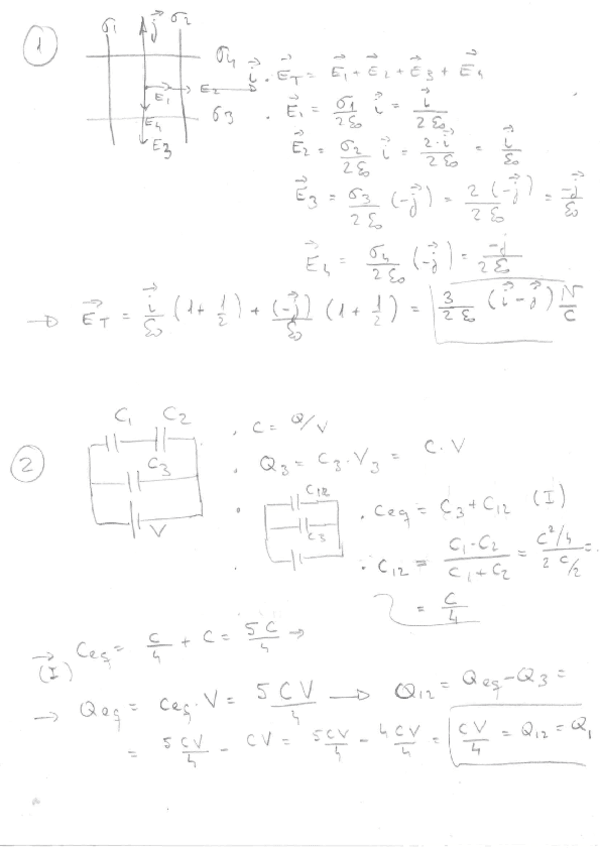 1
σ1 j⃗ σ2
σ4
i⃗
E1 E2
E4
E3
σ3
. E⃗T = E⃗1 + E⃗2 + E⃗3 + E⃗4
. E⃗1 = σ1/2ε0 i⃗ = i⃗/2ε0
E⃗2 = σ2/2ε0 i⃗ = 2·i⃗/2ε0 = i⃗/ε0
E⃗3 = σ3/2ε0 (-j⃗) = 2(-j⃗)/2ε0 = -j⃗/ε0
E⃗4 = σ4/2ε0 (-j⃗) = -j/2ε0
→ E⃗T = i⃗/ε0 (1 + 1/2) + (-j⃗)/ε0 (1 + 1/2) = 3/2ε0 (i⃗ - j⃗) N/C
2
C1 C2
C3
V
. C = Q/V
. Q3 = C3·V3 = C·V
C12
C3
. Ceq = C3 + C12 (I)
. C12 = C1·C2/C1+C2 = C²/4/2 C/2 =
= C/4
→(I) Ceq = C/4 + C = 5C/4 →
→ Qeq = Ceq·V = 5CV/4 → Q12 = Qeq - Q3 =
= 5CV/4 - CV = 5CV/4 - 4CV/4 = CV/4 = Q12 = Q1